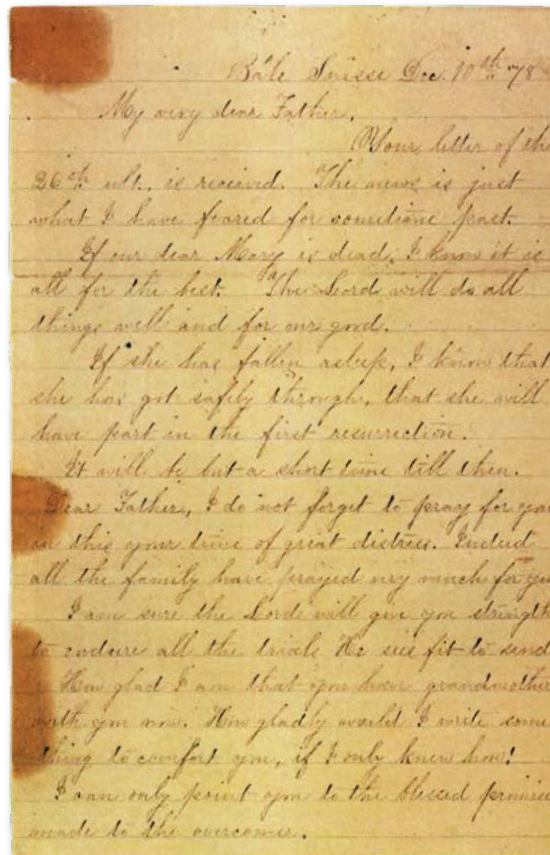 Bâle Suisse Dec. 10th 78
My very dear Father,
Your letter of the
26th ult. is received. The news is just
what I have feared for sometime past.
If our dear Mary is dead, I know it is
all for the best. The Lord will do all
things well and for our good.
If she has fallen asleep, I know that
she has got safely through, that she will
have part in the first resurrection.
It will be but a short time till then.
Dear Father, I do not forget to pray for you
in this your time of great distress. Indeed
all the family have prayed very much for you
I am sure the Lord will give you strength
to endure all the trials He sees fit to send
How glad I am that you have grandmother
with you now. How gladly would I write some
thing to comfort you, if I only knew how!
I can only point you to the blessed promise
made to the overcomer.